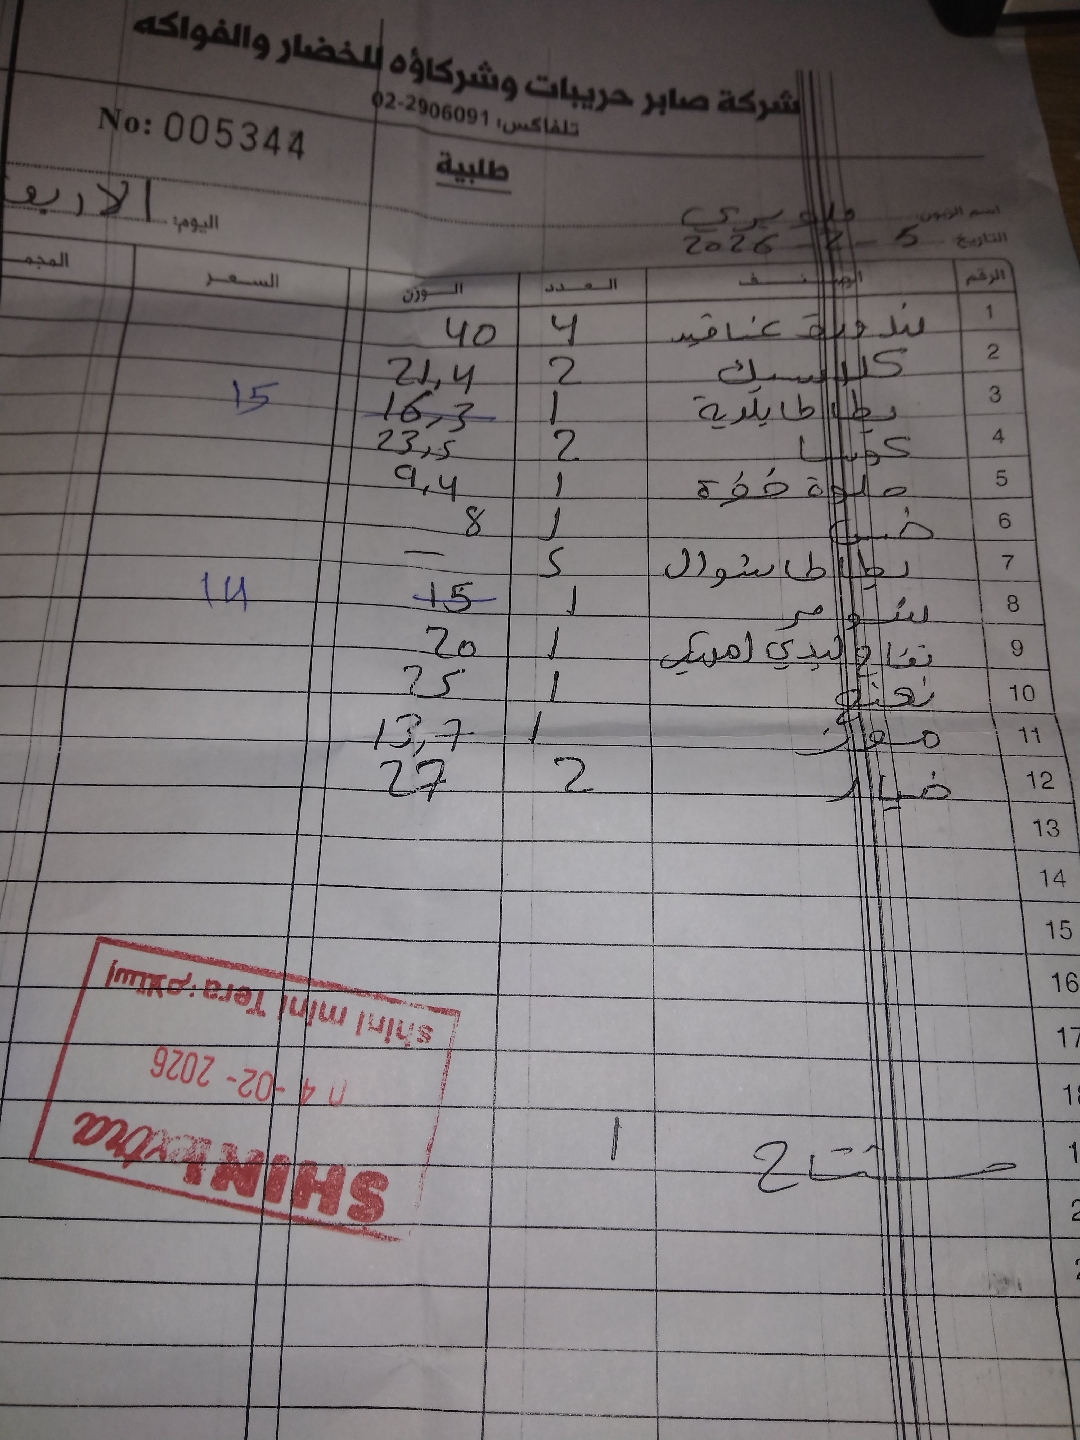 شركة صابر حريبات وشركاؤه للخضار والفواكه
تلفاكس: 02-2906091
No: 005344
طلبية
اسم الزبون:
اليوم: الاربع
التاريخ 5 - 2 - 2026
الرقم الصنف العدد الوزن السعر المجم
1 بندورة عناقيد 4 40
2 كلاسيك 2 21,4
3 بطاطا بلدية 1 16,3 15
4 كوسا 2 23,5
5 1 9,4
6 خس 1 8
7 بطاطا شوال 5 —
8 شومر 1 15 14
9 تفاح ليدي امريكي 1 20
10 نعنع 1 25
11 موز 1 13,7
12 خيار 2 27
13
14
15
16
17
18
1 1
2
2
استلام: shini mini Tera
04-02-2026
SHINI extra